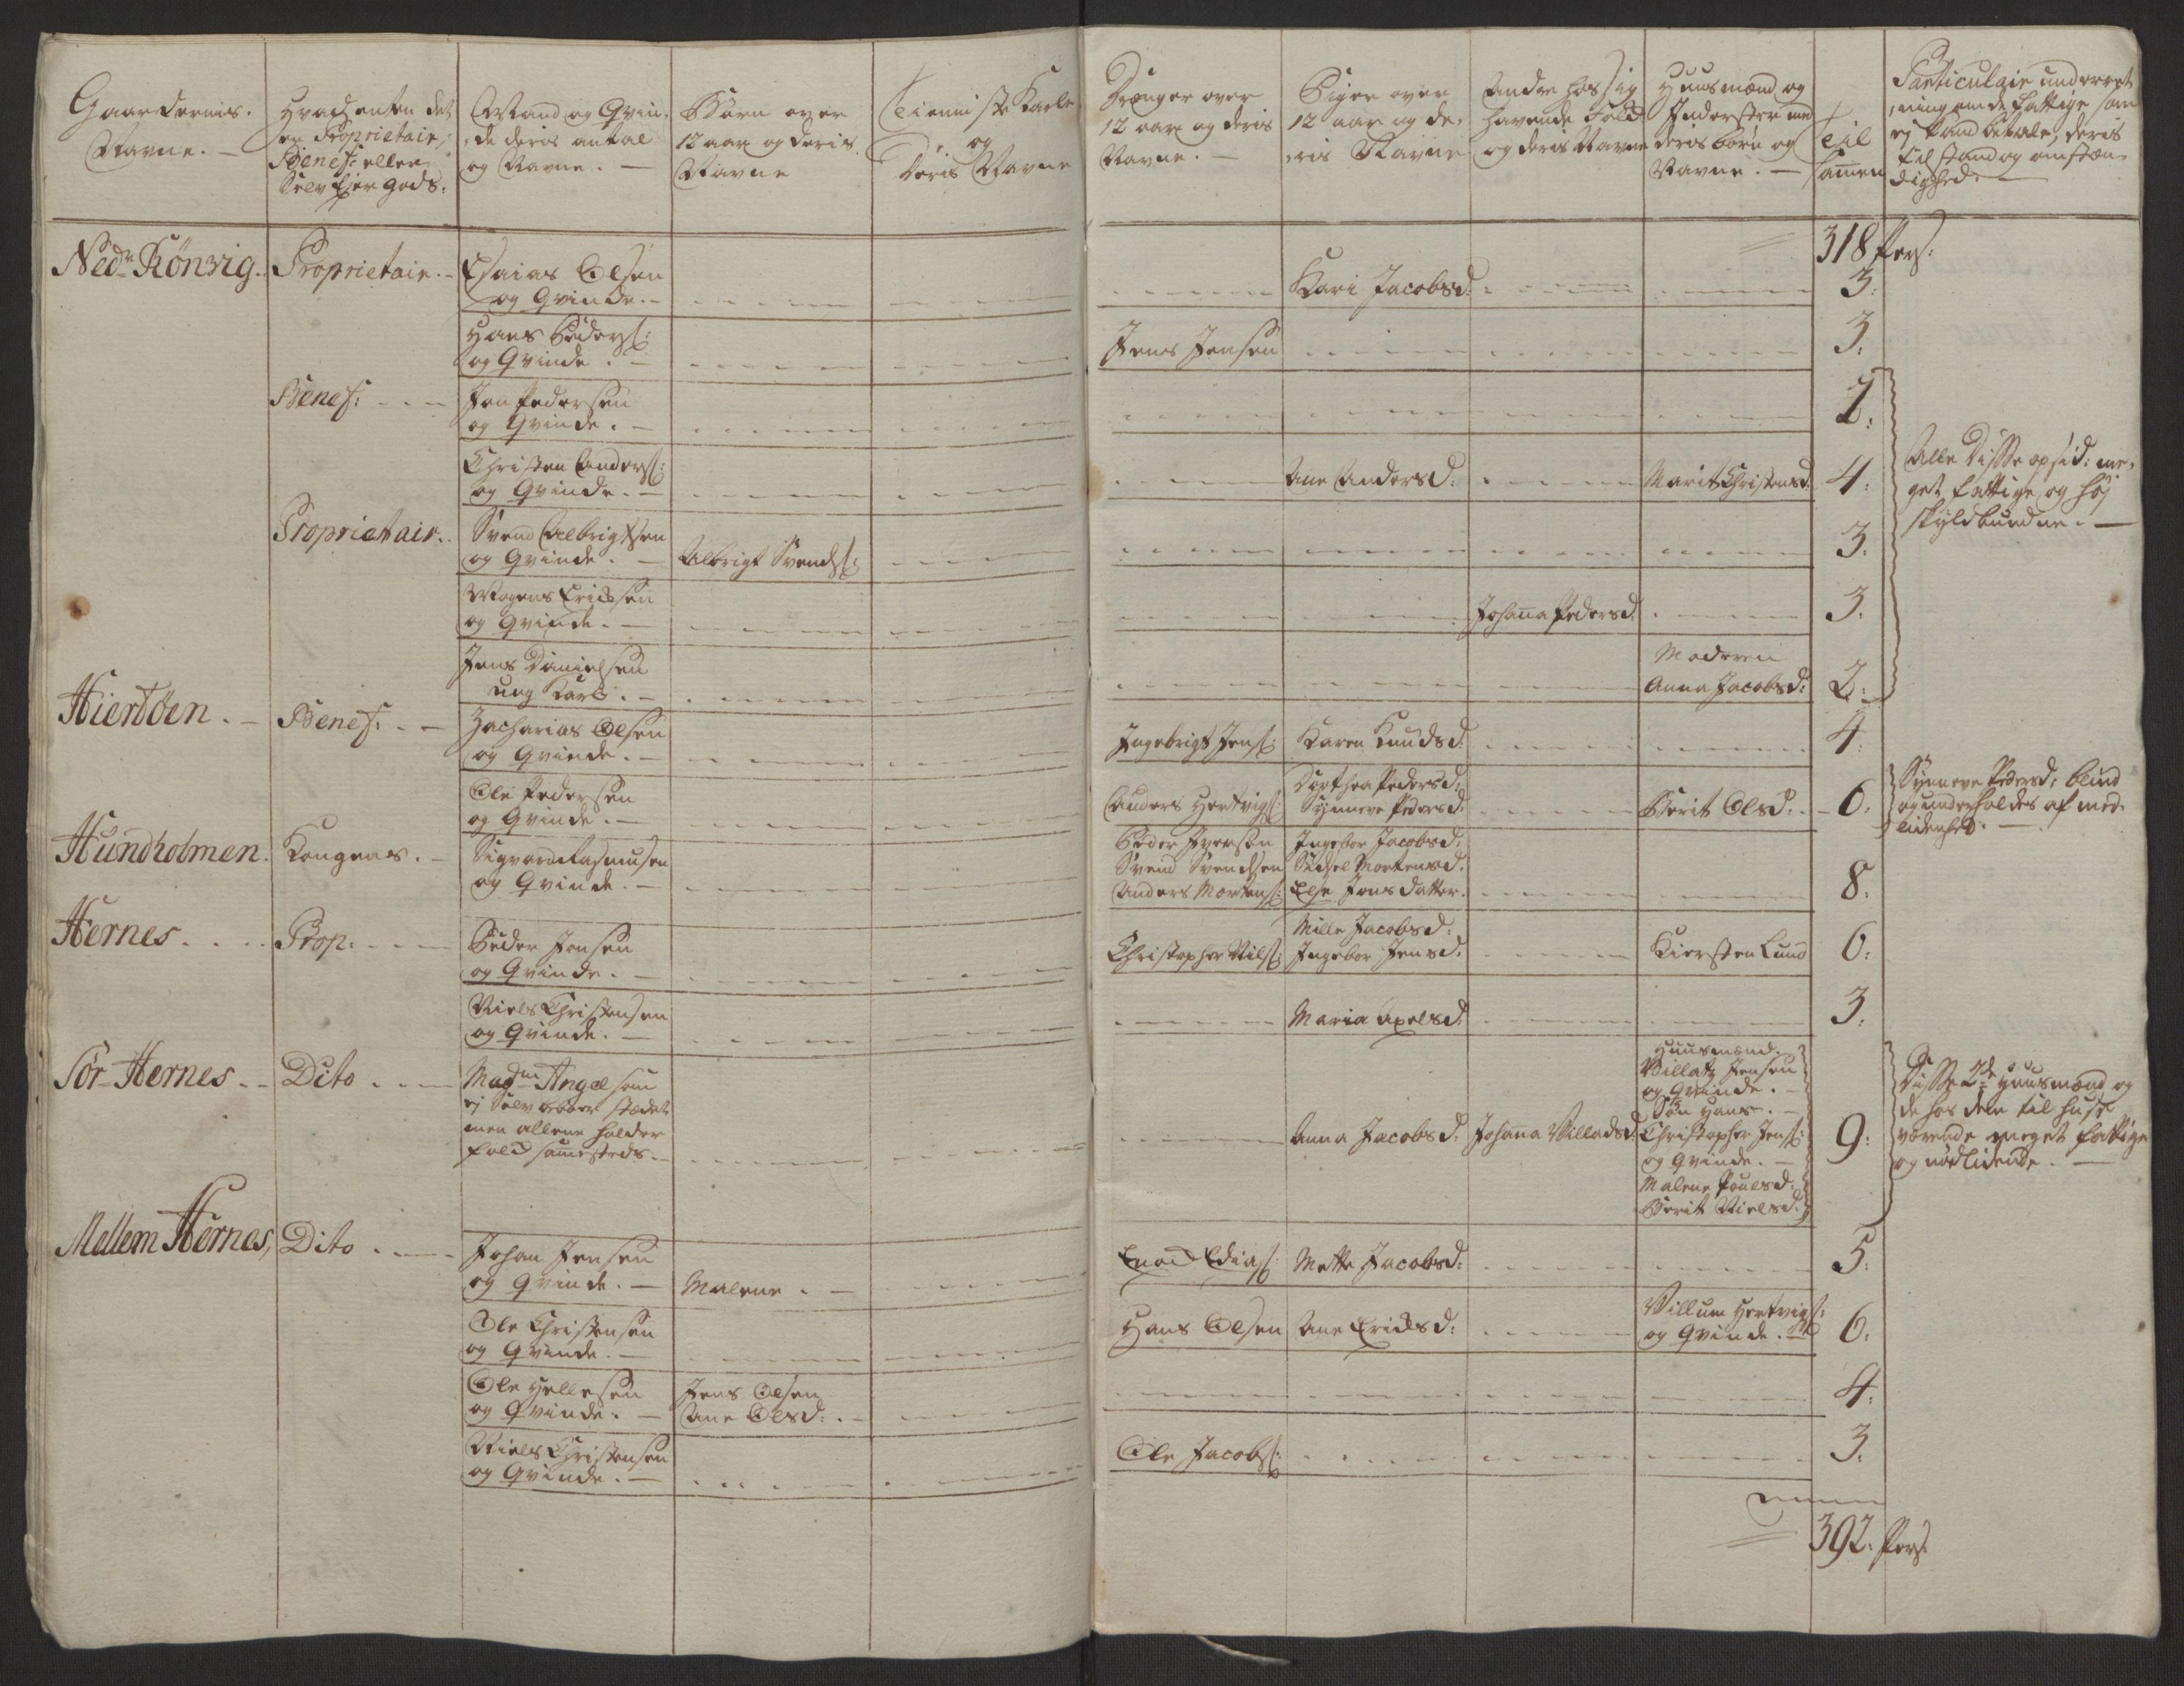 Gaardernis
Navne. —
Hvad enten det
er Proprietair,
Benef: eller
Selv Ejer gods:
Mand og Qvin-
de deris antal
og Navne. —
Børn over
12 aar og deris
Navne
Tienniste Karle
og
Deris Navne
Drenger over
12 aar og deris
Navne. —
Piger over
12 aar og de-
ris Navne
Andre hos sig
havende Folk
og deris Navne
Huusmænd og
Inderster med
deris børn og
Navne. —
Til
sammen
Particulair underret
ning om de fattige som
ej kand betale, deris
tilstand og omstæn-
dighed. —
318 Pers:
Nedr Rönvig. Proprietair. Esaias Olsen
og Qvinde. Kari Jacobsd: 3.
Hans Peders:
og Qvinde. Jens Jensen 3.
Benef: Jon Pedersen
og Qvinde. 2.
Christen Anders:
og Qvinde. Ane Andersd: Marit Christensd: 4.
Alle Disse opsid: me-
get fattige og høj
skyldbundne. —
Proprietair. Svend Albrigtsen
og Qvinde. Albrigt Svends: 3.
Mogens Ericksen
og Qvinde. Johanna Pedersd. 3.
Jens Danielsen
ung Karl. Moderen
Anna Jacobsd: 2.
Hiertöen. Benef: Zacharias Olsen
og Qvinde. Ingebrigt Jens: Karen Knudsd: 4.
Ole Pedersen
og Qvinde. Anders Hertvigs: Dorthea Pedersd:
Synneve Pedersd: Berit Olsd: 6.
Synneve Pedersd: blind
og underholdes af med-
lidenhed. —
Hundholmen. Kongens. Sigvard Rasmusen
og Qvinde. Peder Iversen Ingebor Jacobsd:
Svend Svendsen Sidsel Mortensd:
Anders Mortens: Else Jonsdatter. 8.
Hernes. Prop: Peder Jonsen
og Qvinde. Christopher Nils: Mille Jacobsd:
Ingebor Jensd. Kiersten Lund 6.
Niels Christensen
og Qvinde. Maria Axelsd: 3.
Sör-Hernes. Dito. Madme Angel som
ej Selv beboer stædet
men allene holder
folk sammesteds. Anna Jacobsd: Johanna Willadsd:
Huusmænd.
Willatz Jensen
og Qvinde. —
Søn Hans. —
Christopher Jens:
og Qvinde. —
Malene Poulsd:
Berit Nielsd: 9.
Disse 2de Huusmænd og
de hos dem til huse
værende meget fattige
og nødlidende. —
Mellem Hernes, Dito. Johan Jensen
og Qvinde. Malene. Mette Jacobsd: 5.
Ole Christensen
og Qvinde. Hans Olsen Ane Ericksd: Willum Hertvigs:
og Qvinde. 6.
Ole Hellesen
og Qvinde. Jens Olsen
Ane Olsd: 4.
Niels Christensen
og Qvinde. Ole Jacobs: 3.
392. Pers: